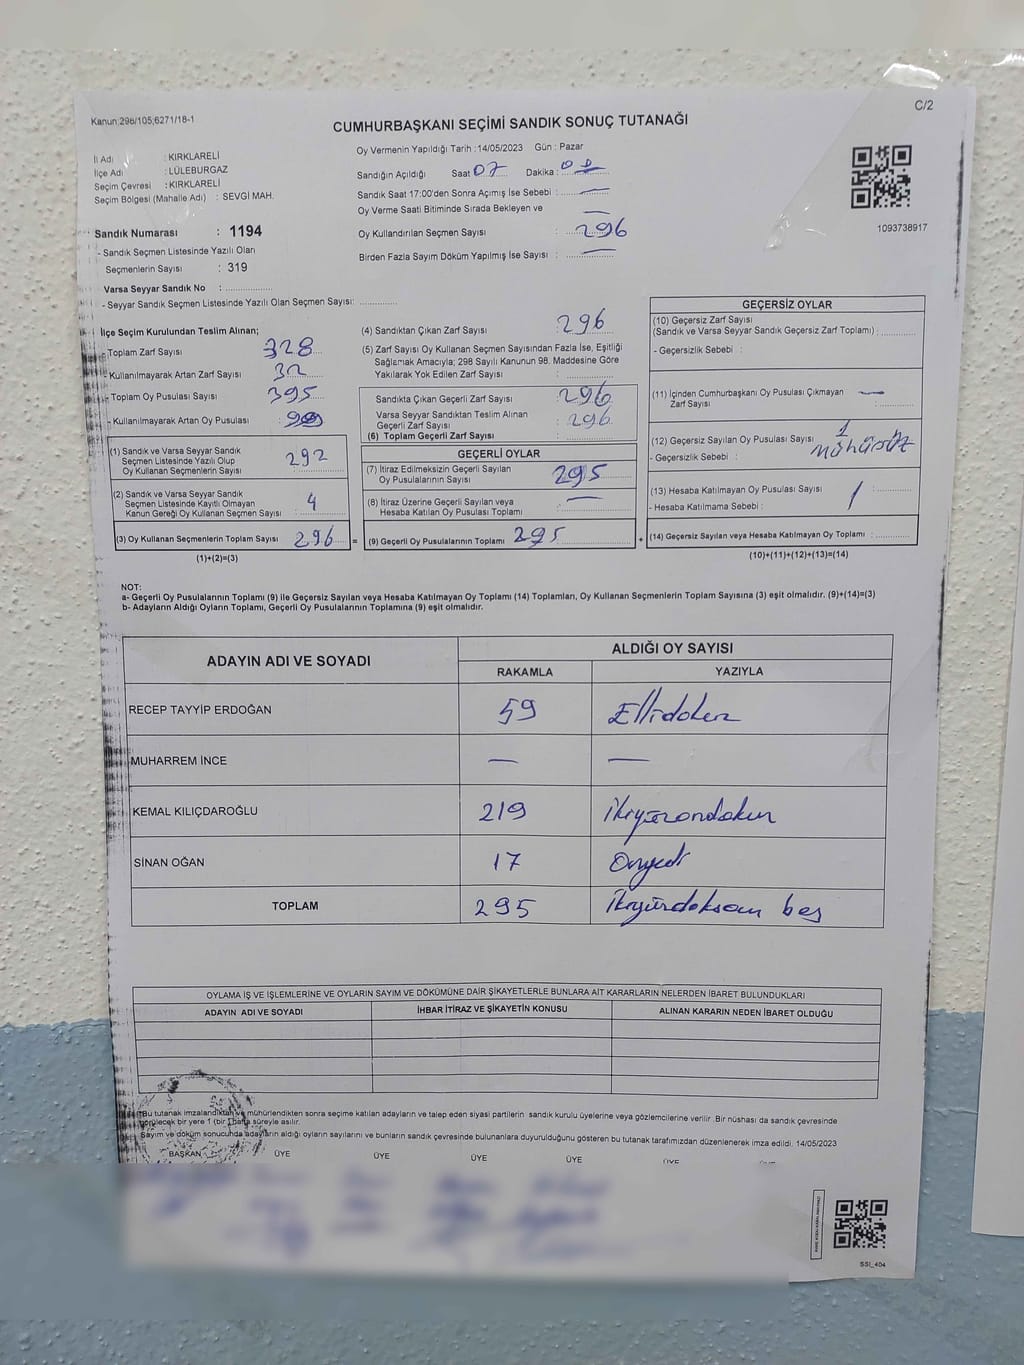 Kanun:298/105;6271/18-1
C/2
CUMHURBAŞKANI SEÇİMİ SANDIK SONUÇ TUTANAĞI
İl Adı : KIRKLARELİ
İlçe Adı : LÜLEBURGAZ
Seçim Çevresi : KIRKLARELİ
Seçim Bölgesi (Mahalle Adı) : SEVGİ MAH.
Sandık Numarası : 1194
- Sandık Seçmen Listesinde Yazılı Olan
Seçmenlerin Sayısı : 319
Varsa Seyyar Sandık No :
- Seyyar Sandık Seçmen Listesinde Yazılı Olan Seçmen Sayısı:
Oy Vermenin Yapıldığı Tarih :14/05/2023 Gün : Pazar
Sandığın Açıldığı Saat 07 Dakika :
Sandık Saat 17:00'den Sonra Açımış İse Sebebi : —
Oy Verme Saati Bitiminde Sırada Bekleyen ve —
Oy Kullandırılan Seçmen Sayısı : 296
Birden Fazla Sayım Döküm Yapılmış İse Sayısı : —
1093738917
İlçe Seçim Kurulundan Teslim Alınan;
- Toplam Zarf Sayısı 328
- Kullanılmayarak Artan Zarf Sayısı 32
- Toplam Oy Pusulası Sayısı 395
- Kullanılmayarak Artan Oy Pusulası
(1) Sandık ve Varsa Seyyar Sandık
Seçmen Listesinde Yazılı Olup
Oy Kullanan Seçmenlerin Sayısı 292
(2) Sandık ve Varsa Seyyar Sandık
Seçmen Listesinde Kayıtlı Olmayan
Kanun Gereği Oy Kullanan Seçmen Sayısı 4
(3) Oy Kullanan Seçmenlerin Toplam Sayısı 296 =
(1)+(2)=(3)
(4) Sandıktan Çıkan Zarf Sayısı 296
(5) Zarf Sayısı Oy Kullanan Seçmen Sayısından Fazla İse, Eşitliği
Sağlamak Amacıyla; 298 Sayılı Kanunun 98. Maddesine Göre
Yakılarak Yok Edilen Zarf Sayısı :
Sandıkta Çıkan Geçerli Zarf Sayısı 296
Varsa Seyyar Sandıktan Teslim Alınan
Geçerli Zarf Sayısı : 296
(6) Toplam Geçerli Zarf Sayısı
GEÇERLİ OYLAR
(7) İtiraz Edilmeksizin Geçerli Sayılan
Oy Pusulalarının Sayısı : 295
(8) İtiraz Üzerine Geçerli Sayılan veya
Hesaba Katılan Oy Pusulası Toplamı : —
(9) Geçerli Oy Pusulalarının Toplamı 295 +
GEÇERSİZ OYLAR
(10) Geçersiz Zarf Sayısı
(Sandık ve Varsa Seyyar Sandık Geçersiz Zarf Toplamı) :
- Geçersizlik Sebebi :
(11) İçinden Cumhurbaşkanı Oy Pusulası Çıkmayan —
Zarf Sayısı :
(12) Geçersiz Sayılan Oy Pusulası Sayısı 1
- Geçersizlik Sebebi : mühürsüz
(13) Hesaba Katılmayan Oy Pusulası Sayısı :
- Hesaba Katılmama Sebebi : /
(14) Geçersiz Sayılan veya Hesaba Katılmayan Oy Toplamı :
(10)+(11)+(12)+(13)=(14)
NOT:
a- Geçerli Oy Pusulalarının Toplamı (9) ile Geçersiz Sayılan veya Hesaba Katılmayan Oy Toplamı (14) Toplamları, Oy Kullanan Seçmenlerin Toplam Sayısına (3) eşit olmalıdır. (9)+(14)=(3)
b- Adayların Aldığı Oyların Toplamı, Geçerli Oy Pusulalarının Toplamına (9) eşit olmalıdır.
ADAYIN ADI VE SOYADI
ALDIĞI OY SAYISI
RAKAMLA YAZIYLA
RECEP TAYYİP ERDOĞAN 59 Ellidokuz
MUHARREM İNCE — —
KEMAL KILIÇDAROĞLU 219 ikiyüzondokuz
SİNAN OĞAN 17 Onyedi
TOPLAM 295 ikiyüzdoksan beş
OYLAMA İŞ VE İŞLEMLERİNE VE OYLARIN SAYIM VE DÖKÜMÜNE DAİR ŞİKAYETLERLE BUNLARA AİT KARARLARIN NELERDEN İBARET BULUNDUKLARI
ADAYIN ADI VE SOYADI İHBAR İTİRAZ VE ŞİKAYETİN KONUSU ALINAN KARARIN NEDEN İBARET OLDUĞU
Bu tutanak imzalandıktan ve mühürlendikten sonra seçime katılan adayların ve talep eden siyasi partilerin sandık kurulu üyelerine veya gözlemcilerine verilir. Bir nüshası da sandık çevresinde
görülecek bir yere 1 (bir) hafta süreyle asılır.
Sayım ve döküm sonucunda adayların aldığı oyların sayılarını ve bunların sandık çevresinde bulunanlara duyurulduğunu gösteren bu tutanak tarafımızdan düzenlenerek imza edildi. 14/05/2023
BAŞKAN ÜYE ÜYE ÜYE ÜYE ÜYE
SSİ_404